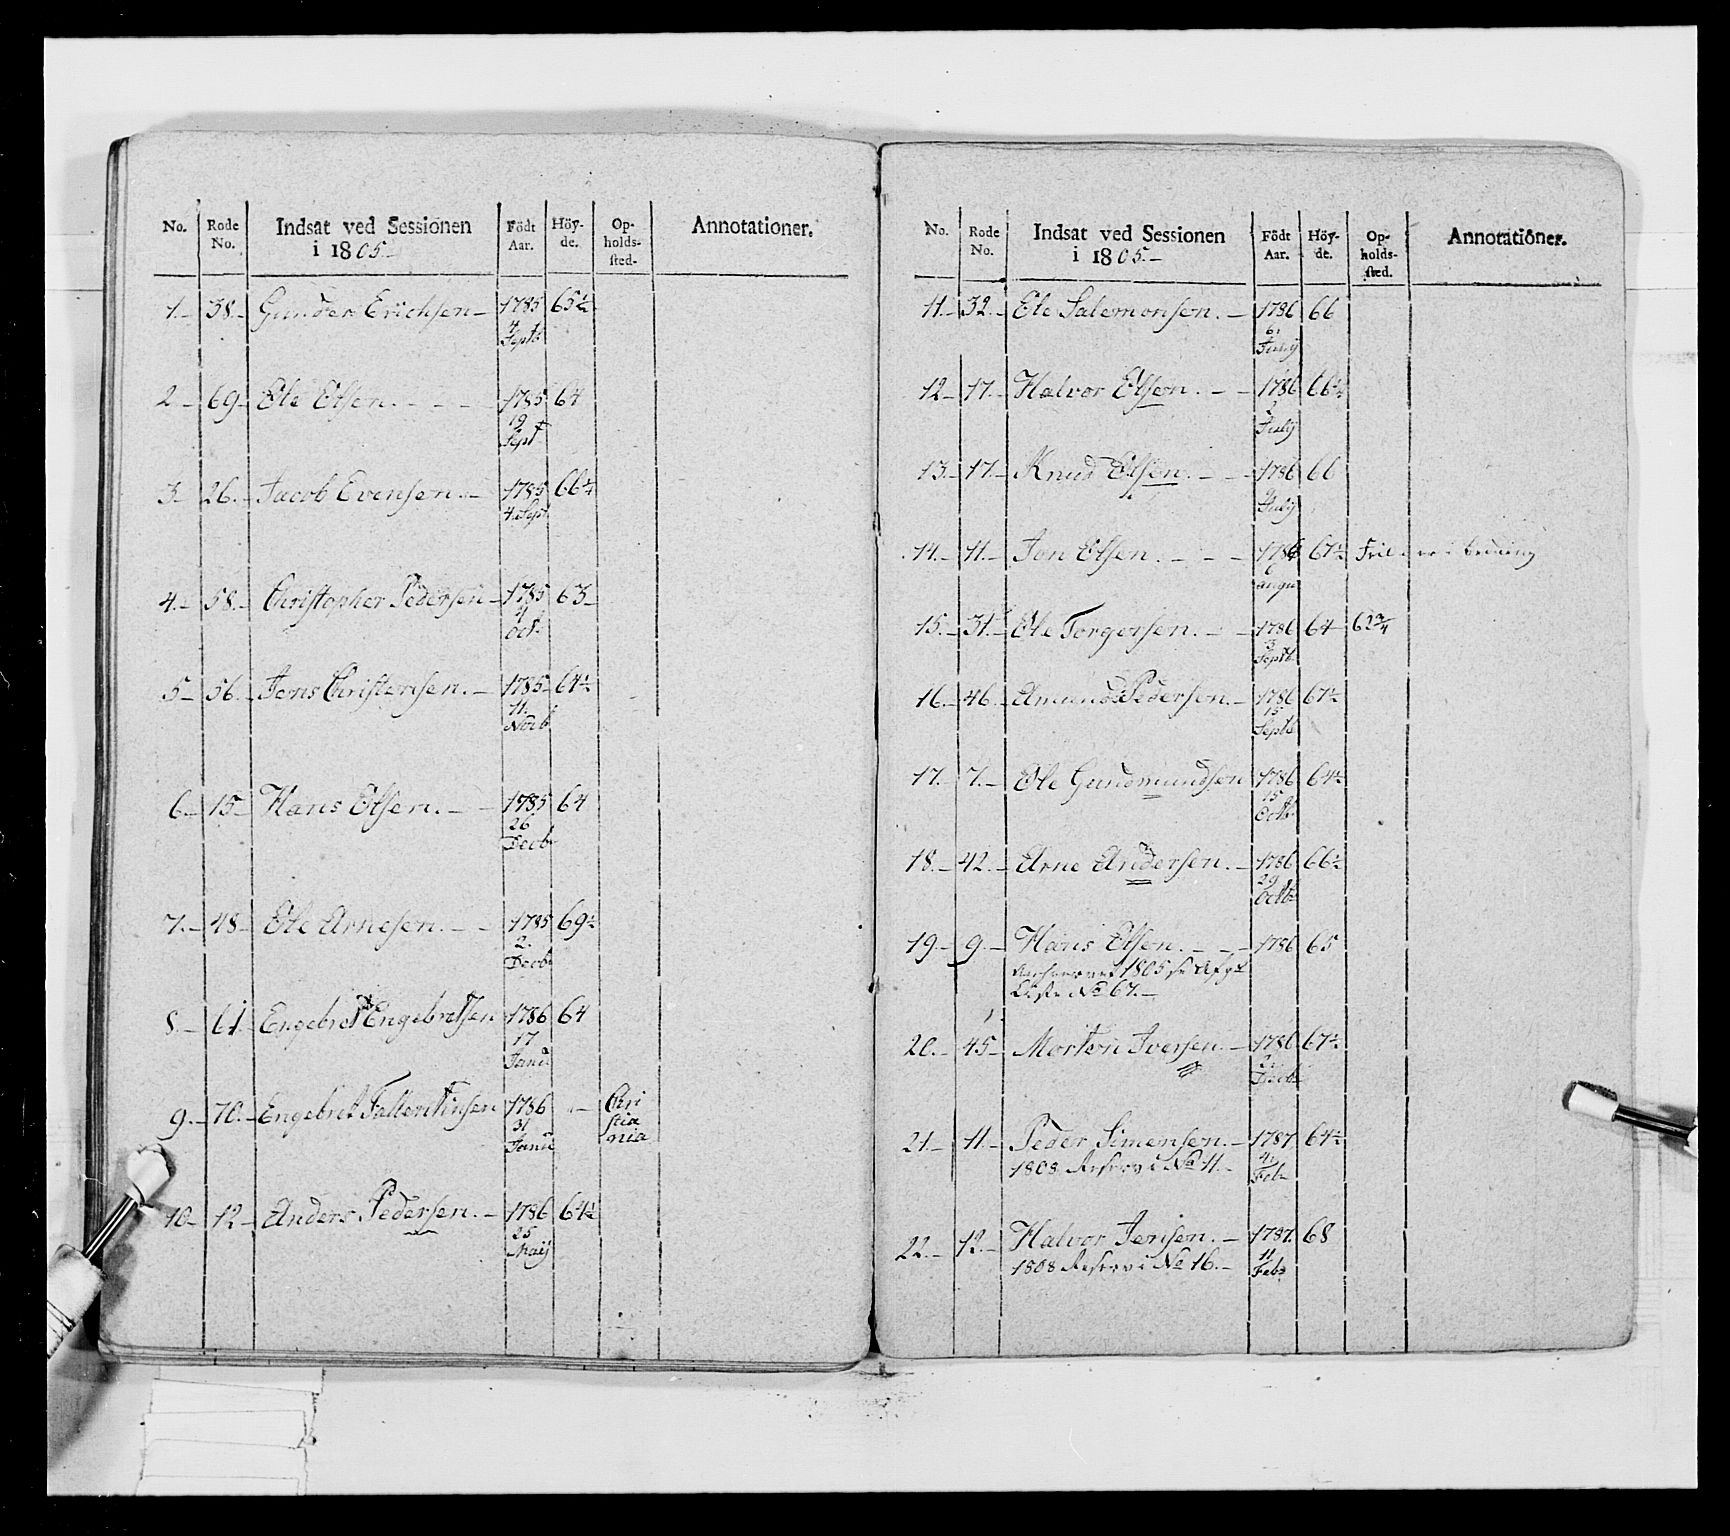 No. Rode No. Indsat ved Sessionen i 1805.– Födt Aar. Höy-de. Op-holds-sted. Annotationer.
1.– 38.– Gunder Erichsen– 1785 65½
4 Septb
2.– 69.– Ole Olsen. – – – 1785 64
19 Sept
3.– 26.– Jacob Evensen.– 1785 66½
4. Sept
4.– 58.– Christopher Pedersen– 1785 63–
Oct
5– 56.– Jens Christensen.– 1785 64½
11. Novb
6.– 15– Hans Olsen.– – 1785 64
26 Decb
7.– 48– Ole Arnesen.– – 1785 69½
2. Decb
8.– 61– Engebret Engebretsen 1786 64
17 Janu
9.– 70.– Engebret Fallentinsen 1786 „– Chri
31 stia
Janu nia
10– 12– Anders Pedersen.– 1786 64½
25 Maij
No. Rode No. Indsat ved Sessionen i 1805.– Födt Aar. Höy-de. Op-holds-sted. Annotationer.
11.– 32.– Ole Salemonsen.– 1786 66
6. July
12– 17.– Halvor Olsen.– – 1786 66½
July
13.– 17.– Knud Olsen.– – 1786 66
July
14.– 11.– Jon Olsen. – – – 1786 67½
6 augu
15.– 31.– Ole Torgersen.– – 1786 64– 63¾
3 Septb.
16.– 46.– Amund Pedersen.– 1786 67½
15 Septb
17.– 7.– Ole Gundmundsen 1786 64½
15 Octb
18.– 42.– Arne Andersen.– 1786 66½
29 Octb
19.– 9.– Hans Olsen.– – – 1786 65
1805 Afg
Liste No 67.–
20.– 45– Morten Iversen.– 1786 67½
2. Decb
21.– 11.– Peder Simensen.– 1787. 64½
1808 Reserv i No 11.– 4. Feb
22.– 12.– Halvor Jensen.– 1787. 68
1808 Reserv i No 16.– 11 Feb